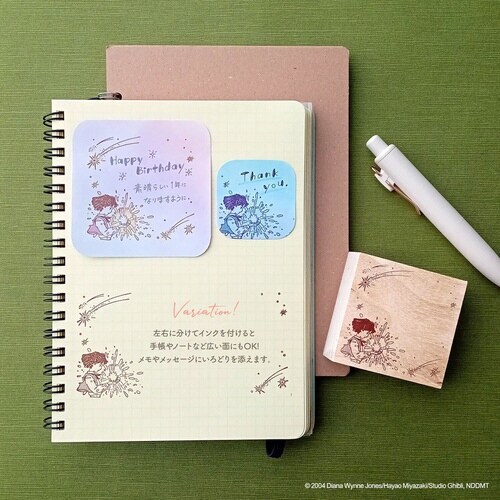 Happy
Birthday
素晴らしい1年に
なりますように
Thank
you.
Variation!
左右に分けてインクを付けると
手帳やノートなど広い面にもOK!
メモやメッセージにいろどりを添えます。
© 2004 Diana Wynne Jones/Hayao Miyazaki/Studio Ghibli, NDDMT